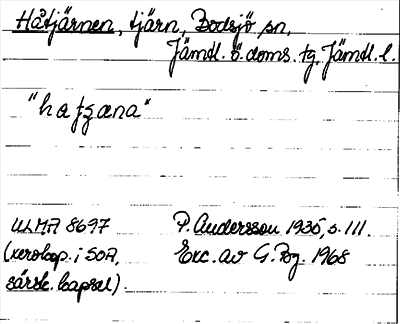 Håtjärnen, tjärn, Bodsjö sn,
Jämtl. ö. doms. tg. Jämtl. l.
"hatzæna"
ULMA 8697 P. Andersson 1935, s. 111.
(xerokop. i SOA, Exc. av G. Bg. 1968
särsk. kapsel).